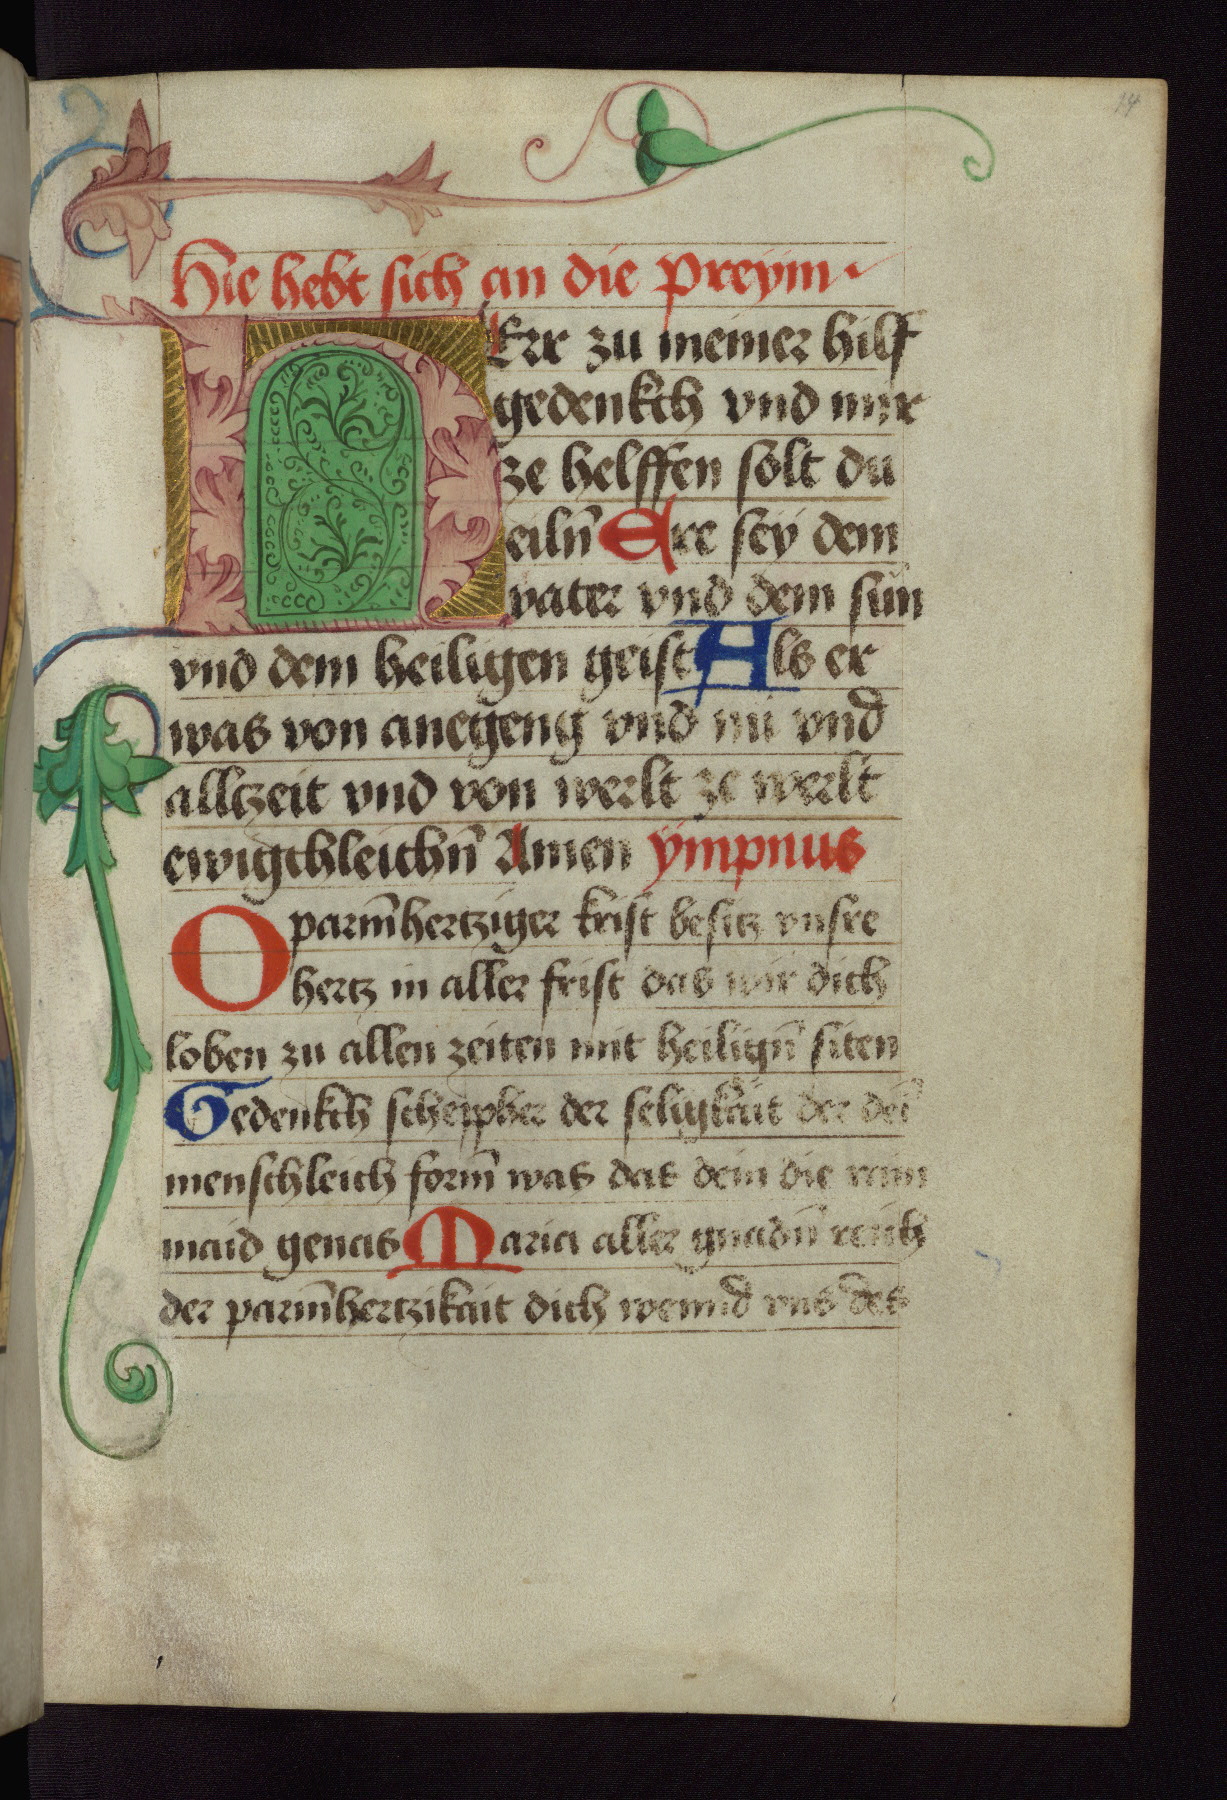 14
Hie hebt sich an die Preym
HErr zu meiner hilf
gedenkch vnd mir
ze helffen solt du
eiln̄ Ere sey dem
vater vnd dem sun
vnd dem heiligen geist Als er
was von anegeng vnd nu vnd
alltzeit vnd von werlt ze werlt
ewigchleichn̄ Amen ympnus
O parm̄hertziger krist besitz vnsre
hertz in aller frist das wir dich
loben zu allen zeiten mit heilign̄ siten
Gedenkch schepher der seligkait der
menschleich form̄ was das dein die rain
maid genas Maria aller gnadn̄ reich
der parm̄hertzikait dich vns des